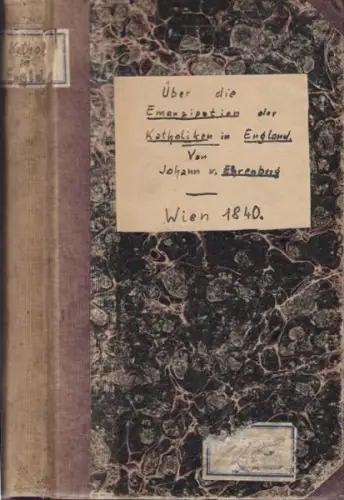 Kathol.
in
England
Über die
Emanzipation der
Katholiken in England.
Von
Johann v. Ehrenberg
Wien 1840.